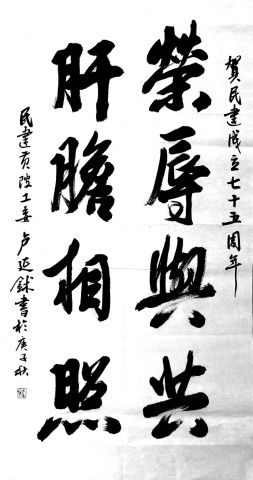 賀民建成立七十五周年
榮辱與共
肝膽相照
民建黄陂工委 卢延錸書於庚子秋